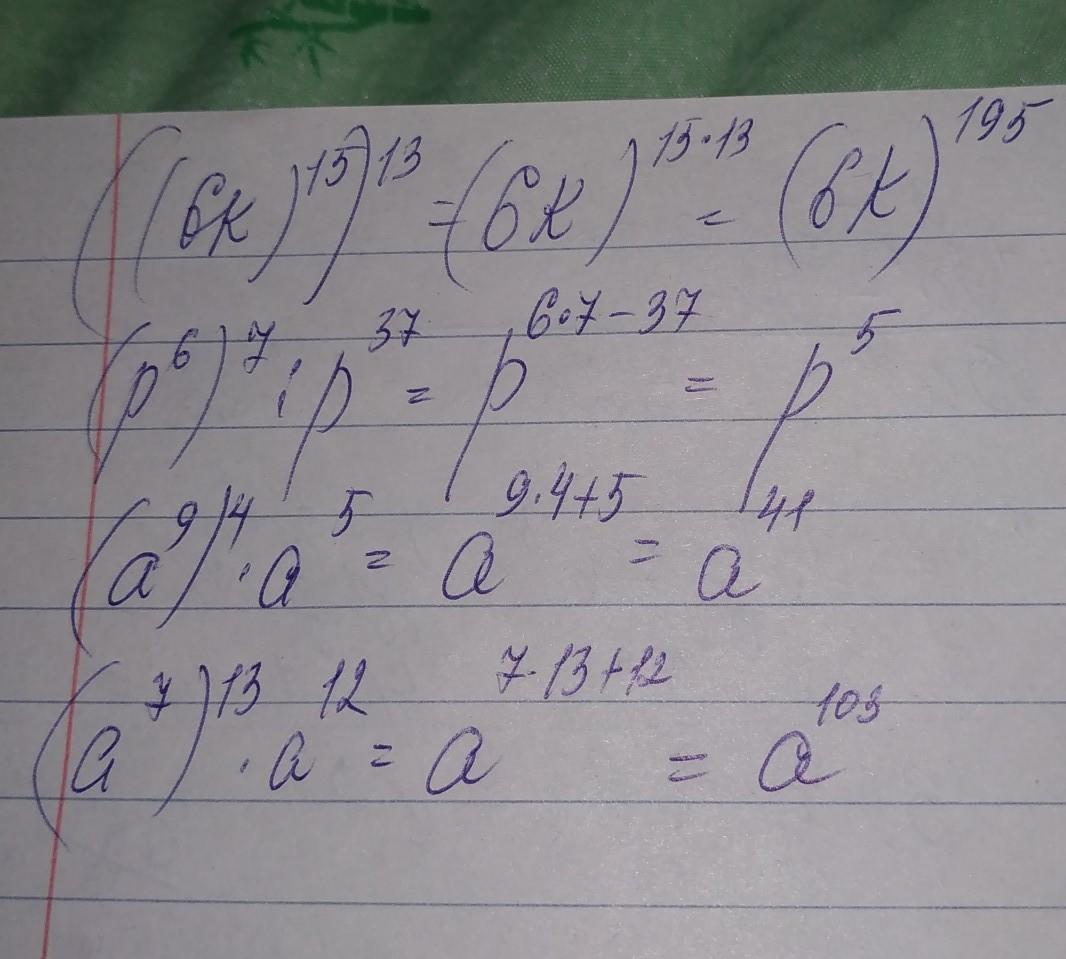 ((6k)¹⁵)¹³ = (6k)¹⁵·¹³ = (6k)¹⁹⁵
(p⁶)⁷ : p³⁷ = p⁶·⁷⁻³⁷ = p⁵
(a⁹)⁴ · a⁵ = a⁹·⁴⁺⁵ = a⁴¹
(a⁷)¹³ · a¹² = a⁷·¹³⁺¹² = a¹⁰³